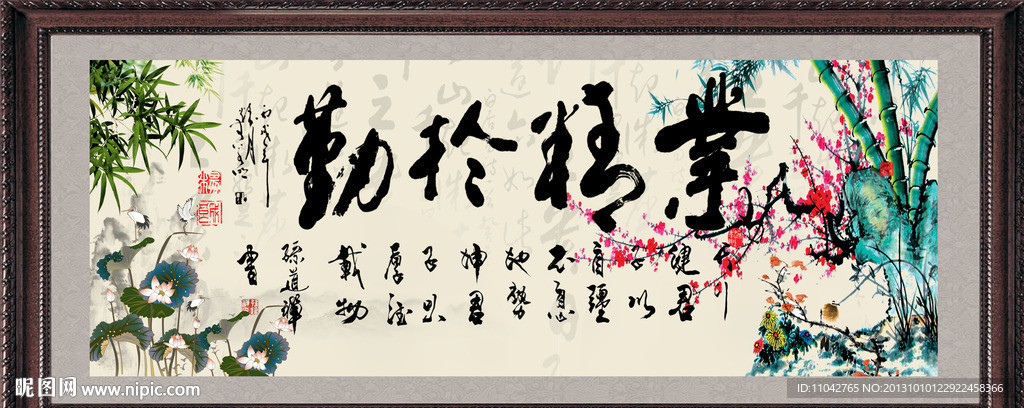 業精於勤
天行
健君
子以
自彊
不息
地勢
坤君
子以
厚德
載物
孫道輝
書
丙戌年
昵图网 www.nipic.com
ID:11042765 NO:20131010122922458366